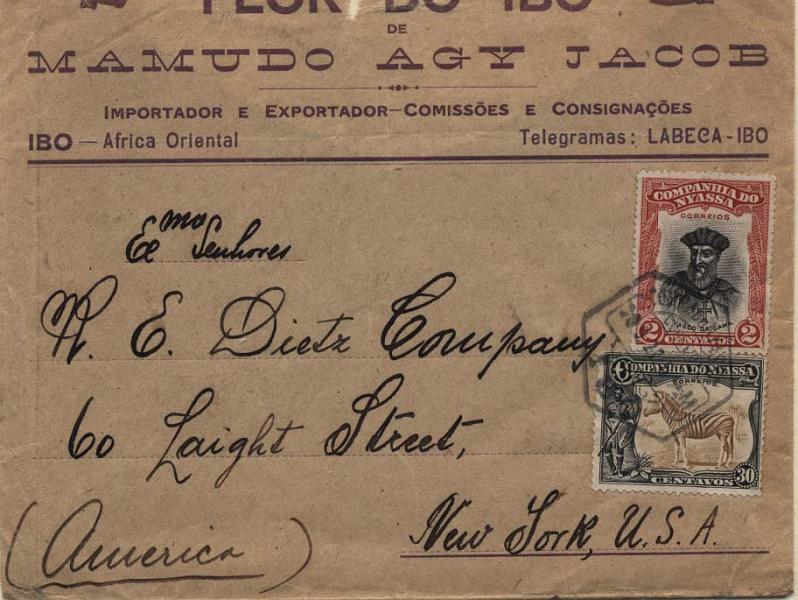 FLOR DO IBO
DE
MAMUDO AGY JACOB
IMPORTADOR E EXPORTADOR—COMISSÕES E CONSIGNAÇÕES
IBO — Africa Oriental
Telegramas: LABECA-IBO
COMPANHIA DO
NYASSA
CORREIOS
VASCO DA GAMA
2 2
CENTAVOS
COMPANHIA DO NYASSA
CORREIOS
CENTAVOS 30
Exmos Senhores
R. E. Dietz Company
60 Laight Street,
New York, U.S.A.
(America)